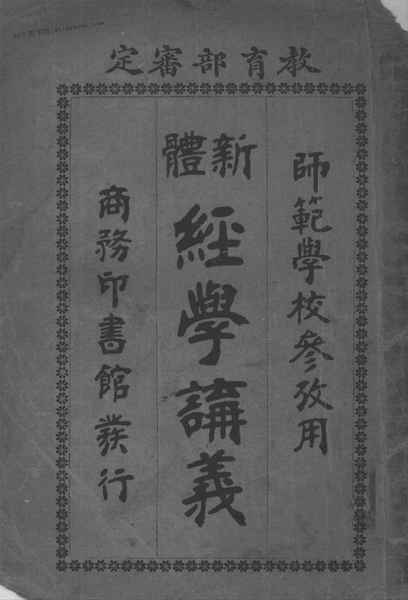 教育部審定
師範學校參攷用
新體
經學講義
商務印書館發行